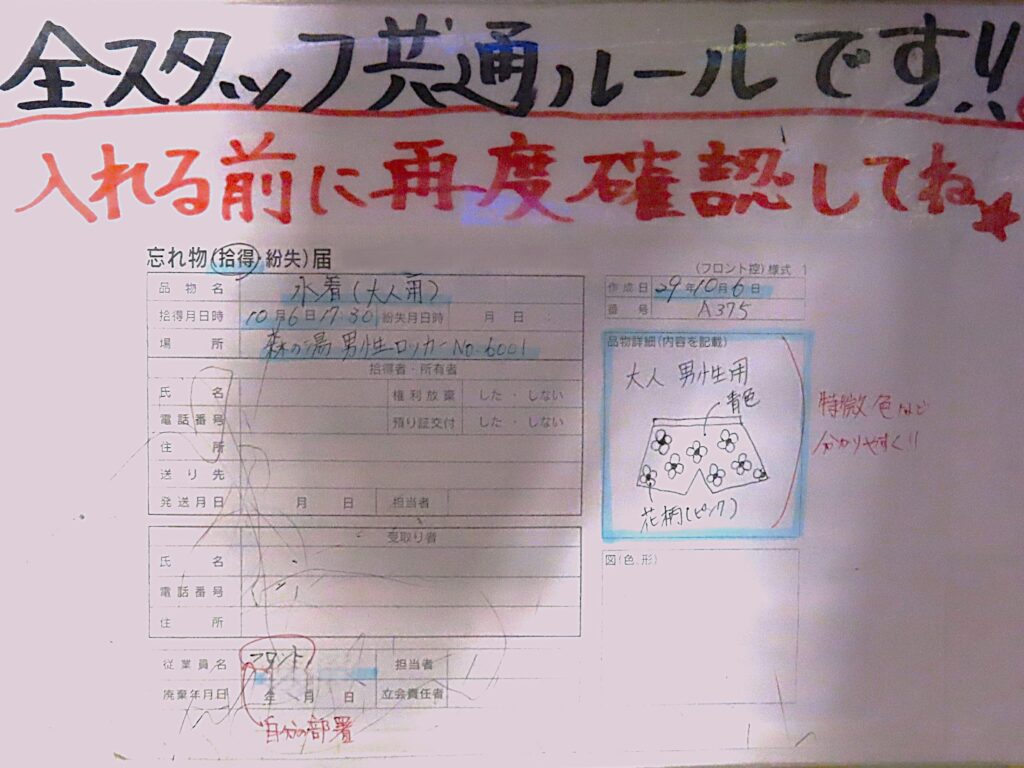 全スタッフ共通ルールです!!
入れる前に再度確認してね★
忘れ物(拾得・紛失)届
(フロント控)様式 1
作成日 29年10月6日
番号 A375
品物名 水着(大人用)
拾得月日時 10月6日17:30 紛失月日時 月 日 :
場所 森の湯 男性ロッカーNo.6001
拾得者・所有者
氏名 権利放棄 した・しない
電話番号 預り証交付 した・しない
住所
送り先
発送月日 月 日 担当者
品物詳細(内容を記載)
大人 男性用
青色
花柄(ピンク)
特徴 色など
分かりやすく!!
受取り者
氏名
電話番号
住所
図(色、形)
従業員名 フロント 担当者
廃棄年月日 年 月 日 立会責任者
自分の部署